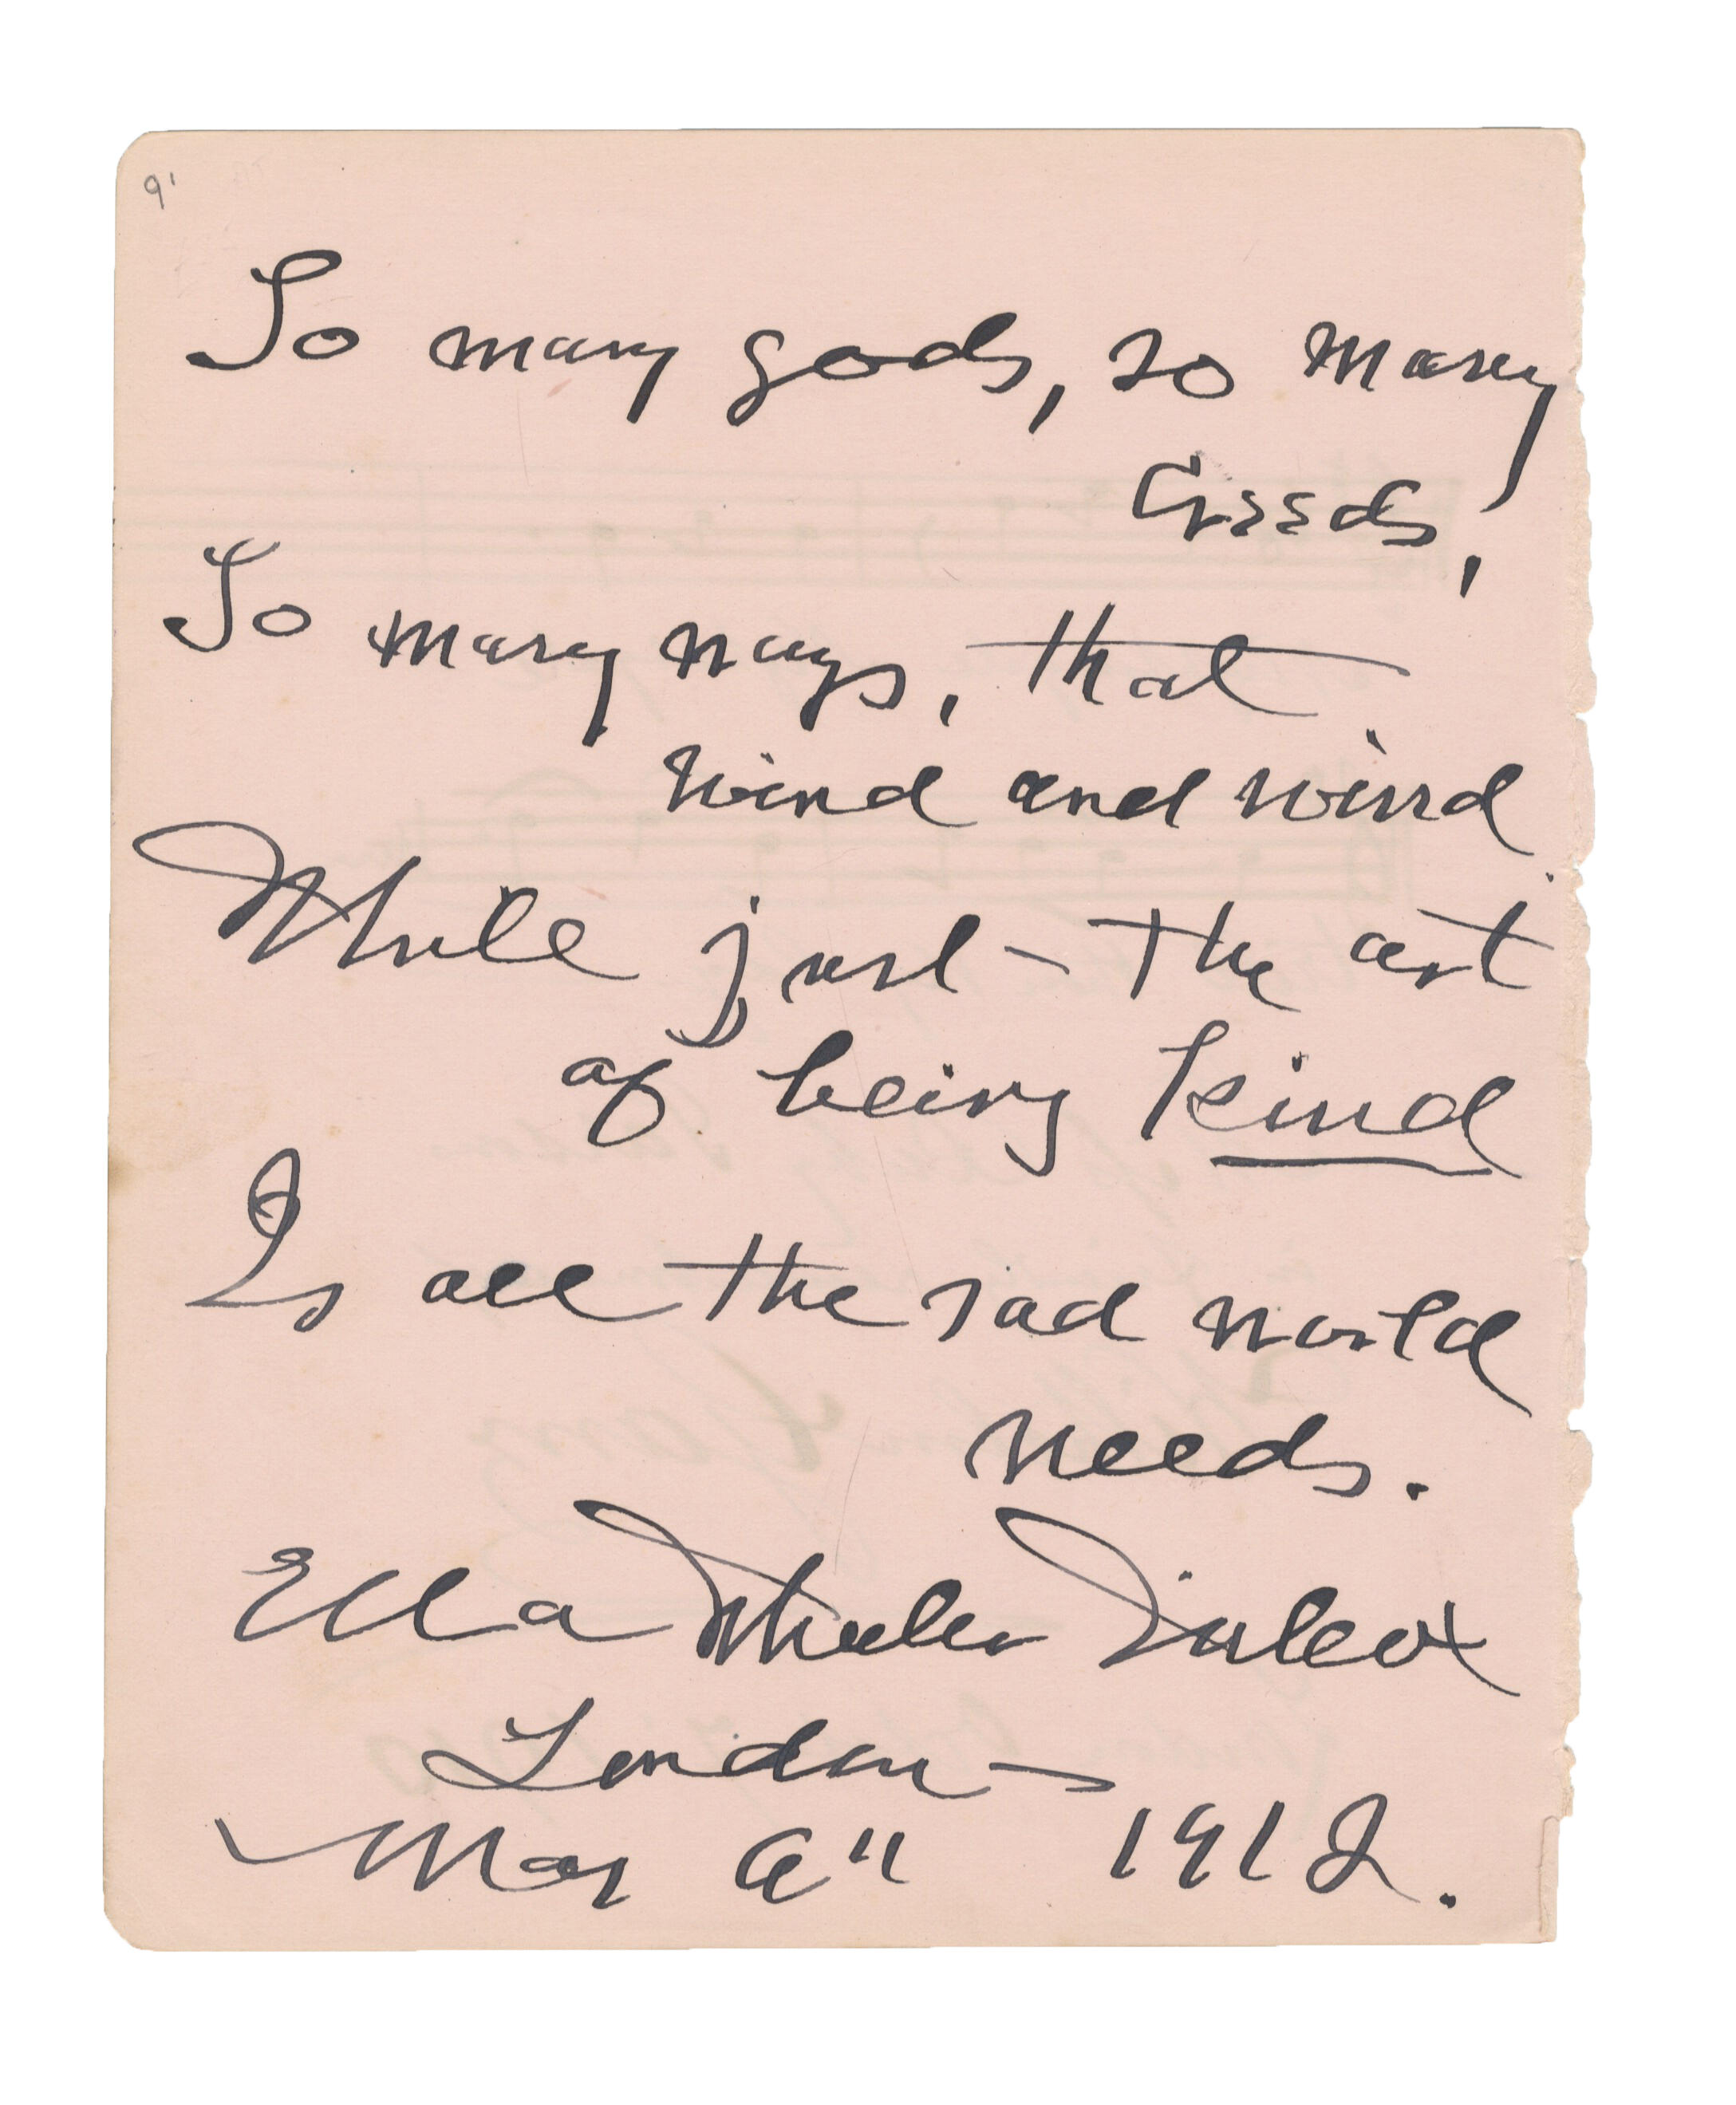 So many gods, so many
creeds,
So many ways, that
wind and wind
While just the art
of being kind
Is all the sad world
needs.
Ella Wheeler Wilcox
London
May 6" 1912.